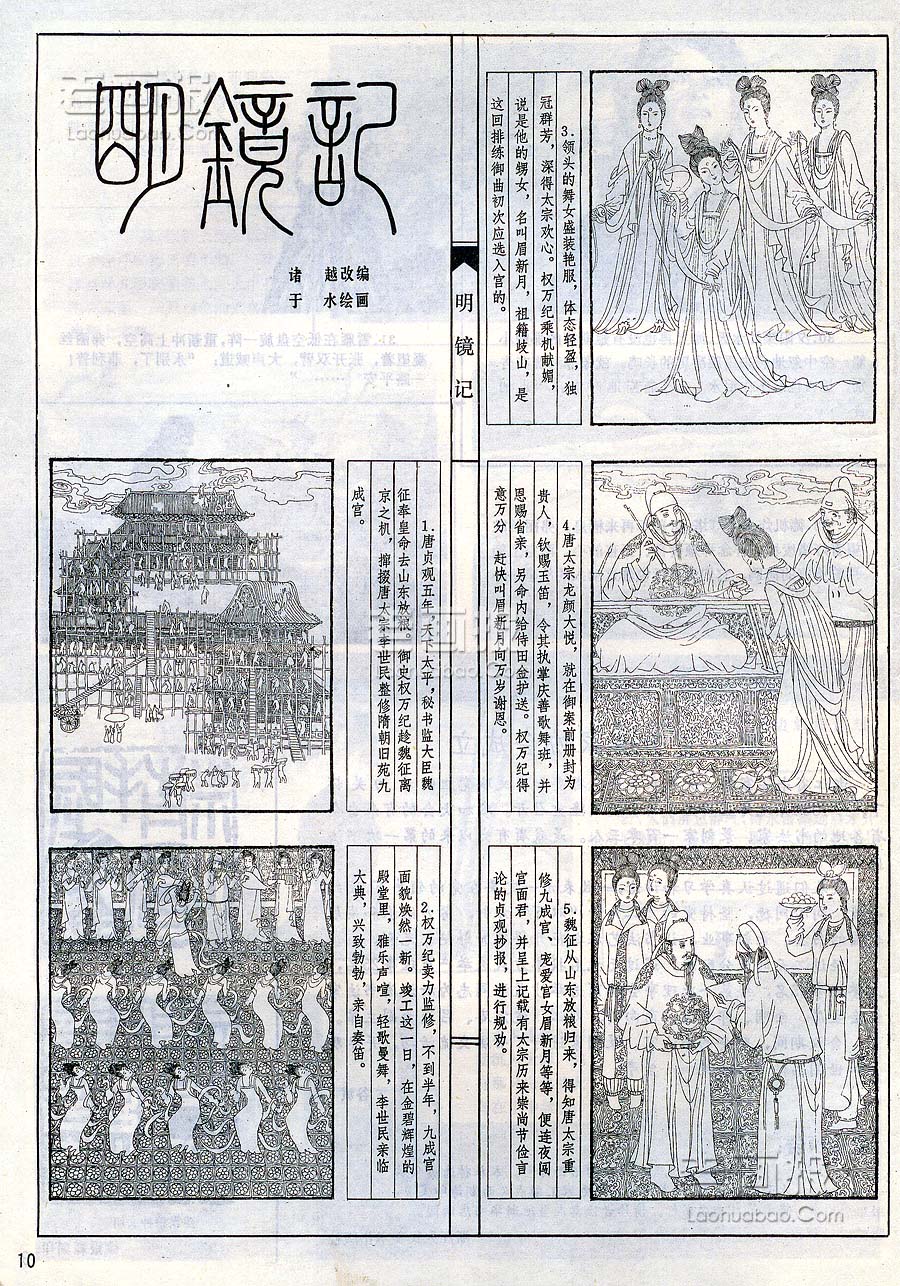 明镜记
诸 越改编
于 水绘画
明镜记
1.唐贞观五年，天下太平，秘书监大臣魏
征奉皇命去山东放粮。御史权万纪趁魏征离
京之机，撺掇唐太宗李世民整修隋朝旧苑九
成宫。
2.权万纪卖力监修，不到半年，九成宫
面貌焕然一新。竣工这一日，在金碧辉煌的
殿堂里，雅乐声喧，轻歌曼舞，李世民亲临
大典，兴致勃勃，亲自奏笛。
3.领头的舞女盛装艳服，体态轻盈，独
冠群芳，深得太宗欢心。权万纪乘机献媚，
说是他的甥女，名叫眉新月，祖籍歧山，是
这回排练御曲初次应选入宫的。
4.唐太宗龙颜大悦，就在御案前册封为
贵人，钦赐玉笛，令其执掌庆善歌舞班，并
恩赐省亲，另命内给侍田金护送。权万纪得
意万分 赶快叫眉新月向万岁谢恩。
5.魏征从山东放粮归来，得知唐太宗重
修九成宫、宠爱宫女眉新月等等，便连夜闯
宫面君，并呈上记载有太宗历来崇尚节俭言
论的贞观抄报，进行规劝。
10
老画报
Laohuabao.Com
老画报
Laohuabao.Com
老画报
Laohuabao.Com